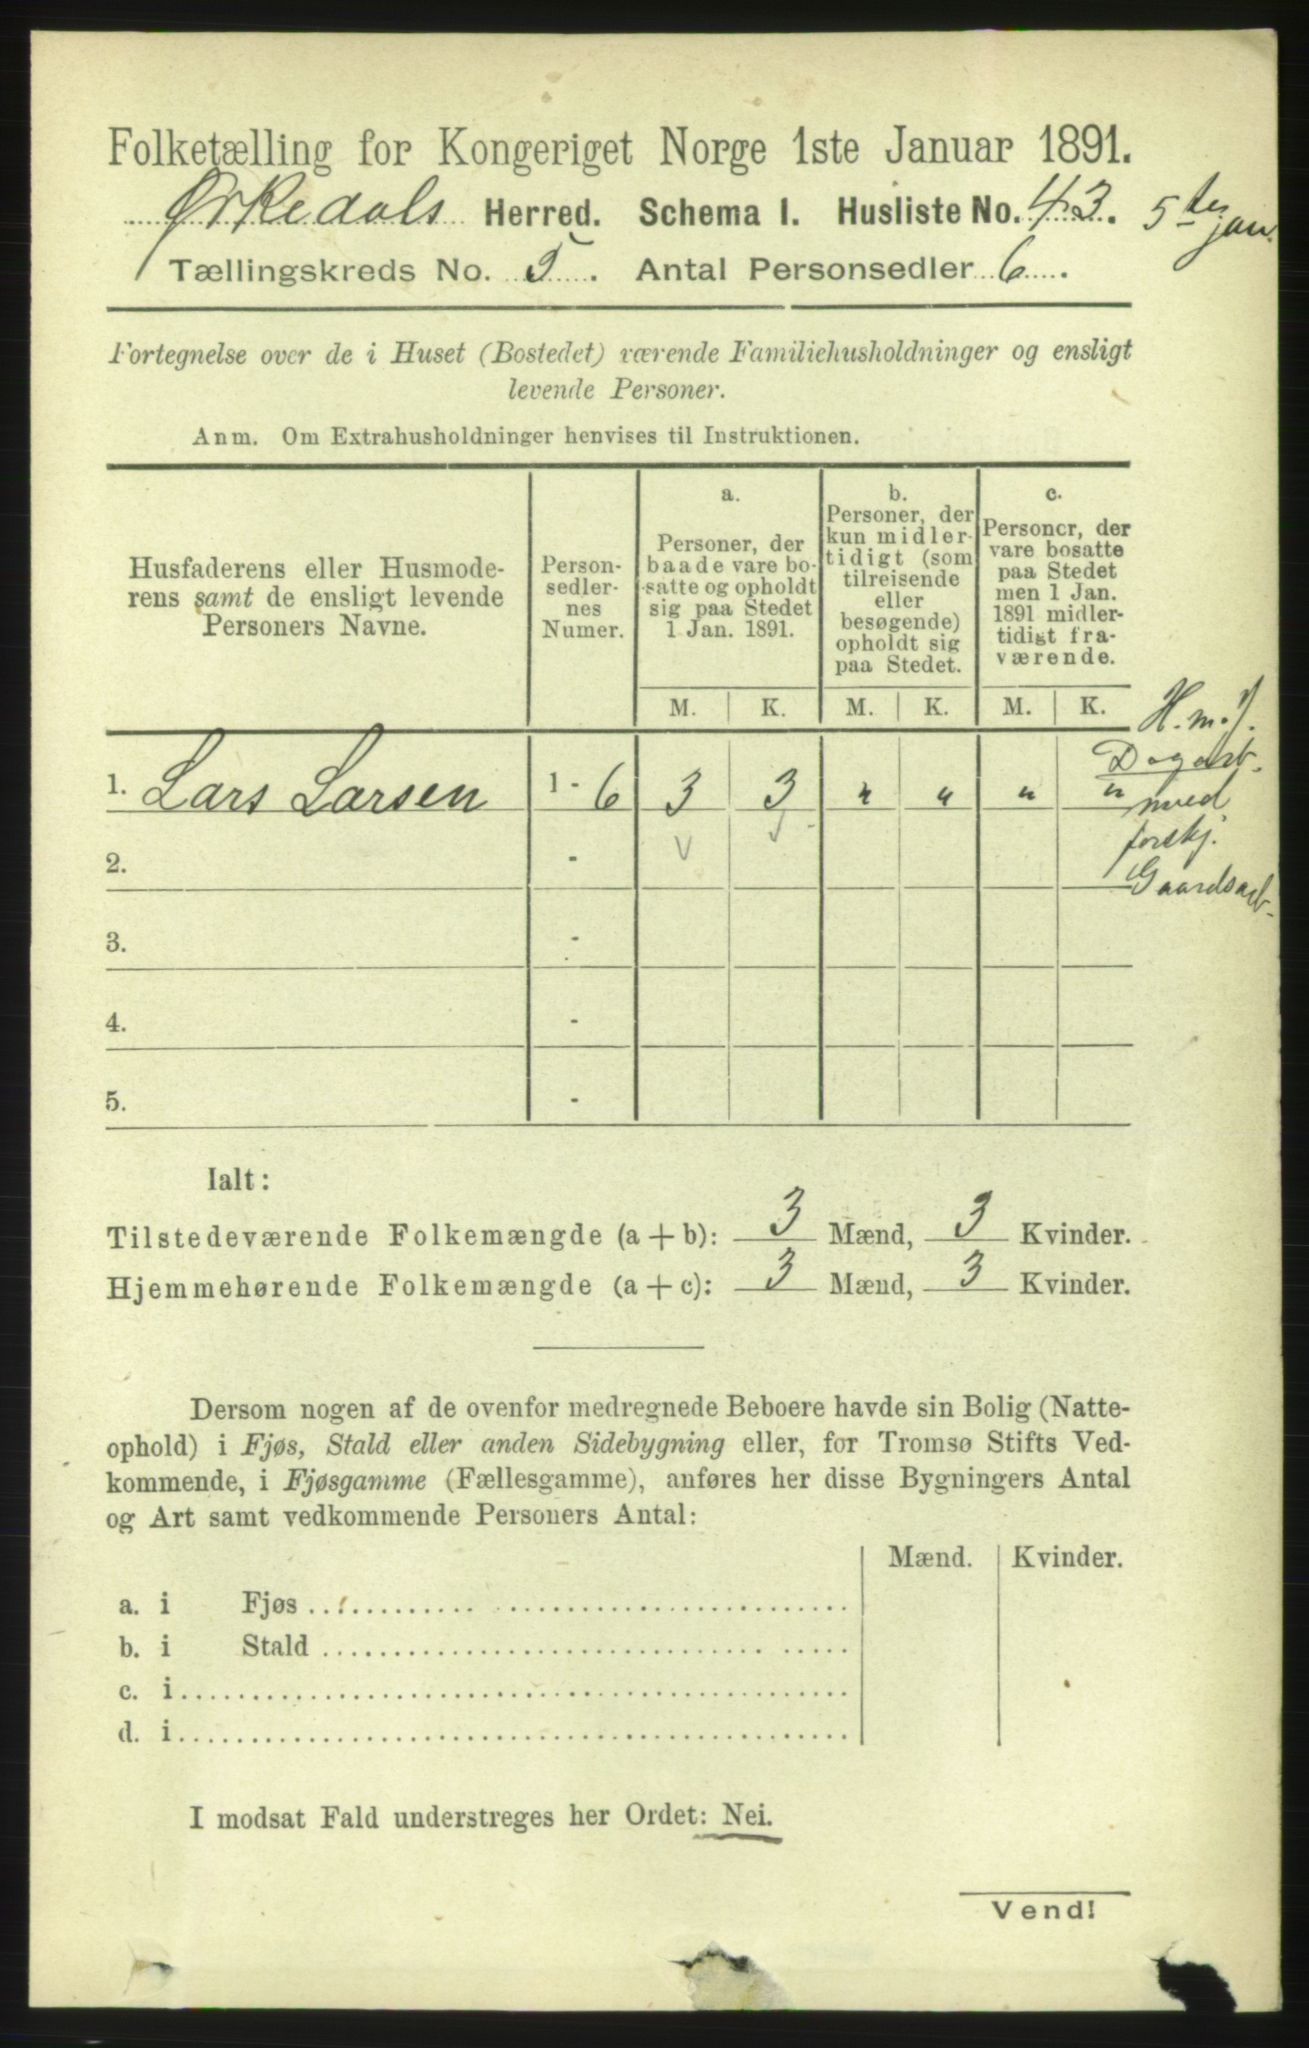 Folketælling for Kongeriget Norge 1ste Januar 1891.
Ørkedals Herred. Schema I. Husliste No. 43.
5te jan.
Tællingskreds No. 5. Antal Personsedler 6.
Fortegnelse over de i Huset (Bostedet) værende Familiehusholdninger og ensligt
levende Personer.
Anm. Om Extrahusholdninger henvises til Instruktionen.
Husfaderens eller Husmode-
rens samt de ensligt levende
Personers Navne.
Person-
sedler-
nes
Numer.
a.
Personer, der
baade vare bo-
satte og opholdt
sig paa Stedet
1 Jan. 1891.
b.
Personer, der
kun midler-
tidigt (som
tilreisende
eller
besøgende)
opholdt sig
paa Stedet.
c.
Personer, der
vare bosatte
paa Stedet
men 1 Jan.
1891 midler-
tidigt fra-
værende.
M. K. M. K. M. K.
H.m.
Dagarb.
med
forskj.
Gaardsarb.
1. Lars Larsen 1 - 6 3 3 " " " "
2. -
3. -
4. -
5. -
Ialt:
Tilstedeværende Folkemængde (a + b): 3 Mænd, 3 Kvinder.
Hjemmehørende Folkemængde (a + c): 3 Mænd, 3 Kvinder.
Dersom nogen af de ovenfor medregnede Beboere havde sin Bolig (Natte-
ophold) i Fjøs, Stald eller anden Sidebygning eller, for Tromsø Stifts Ved-
kommende, i Fjøsgamme (Fællesgamme), anføres her disse Bygningers Antal
og Art samt vedkommende Personers Antal:
Mænd. Kvinder.
a. i Fjøs
b. i Stald
c. i
d. i
I modsat Fald understreges her Ordet: Nei.
Vend!